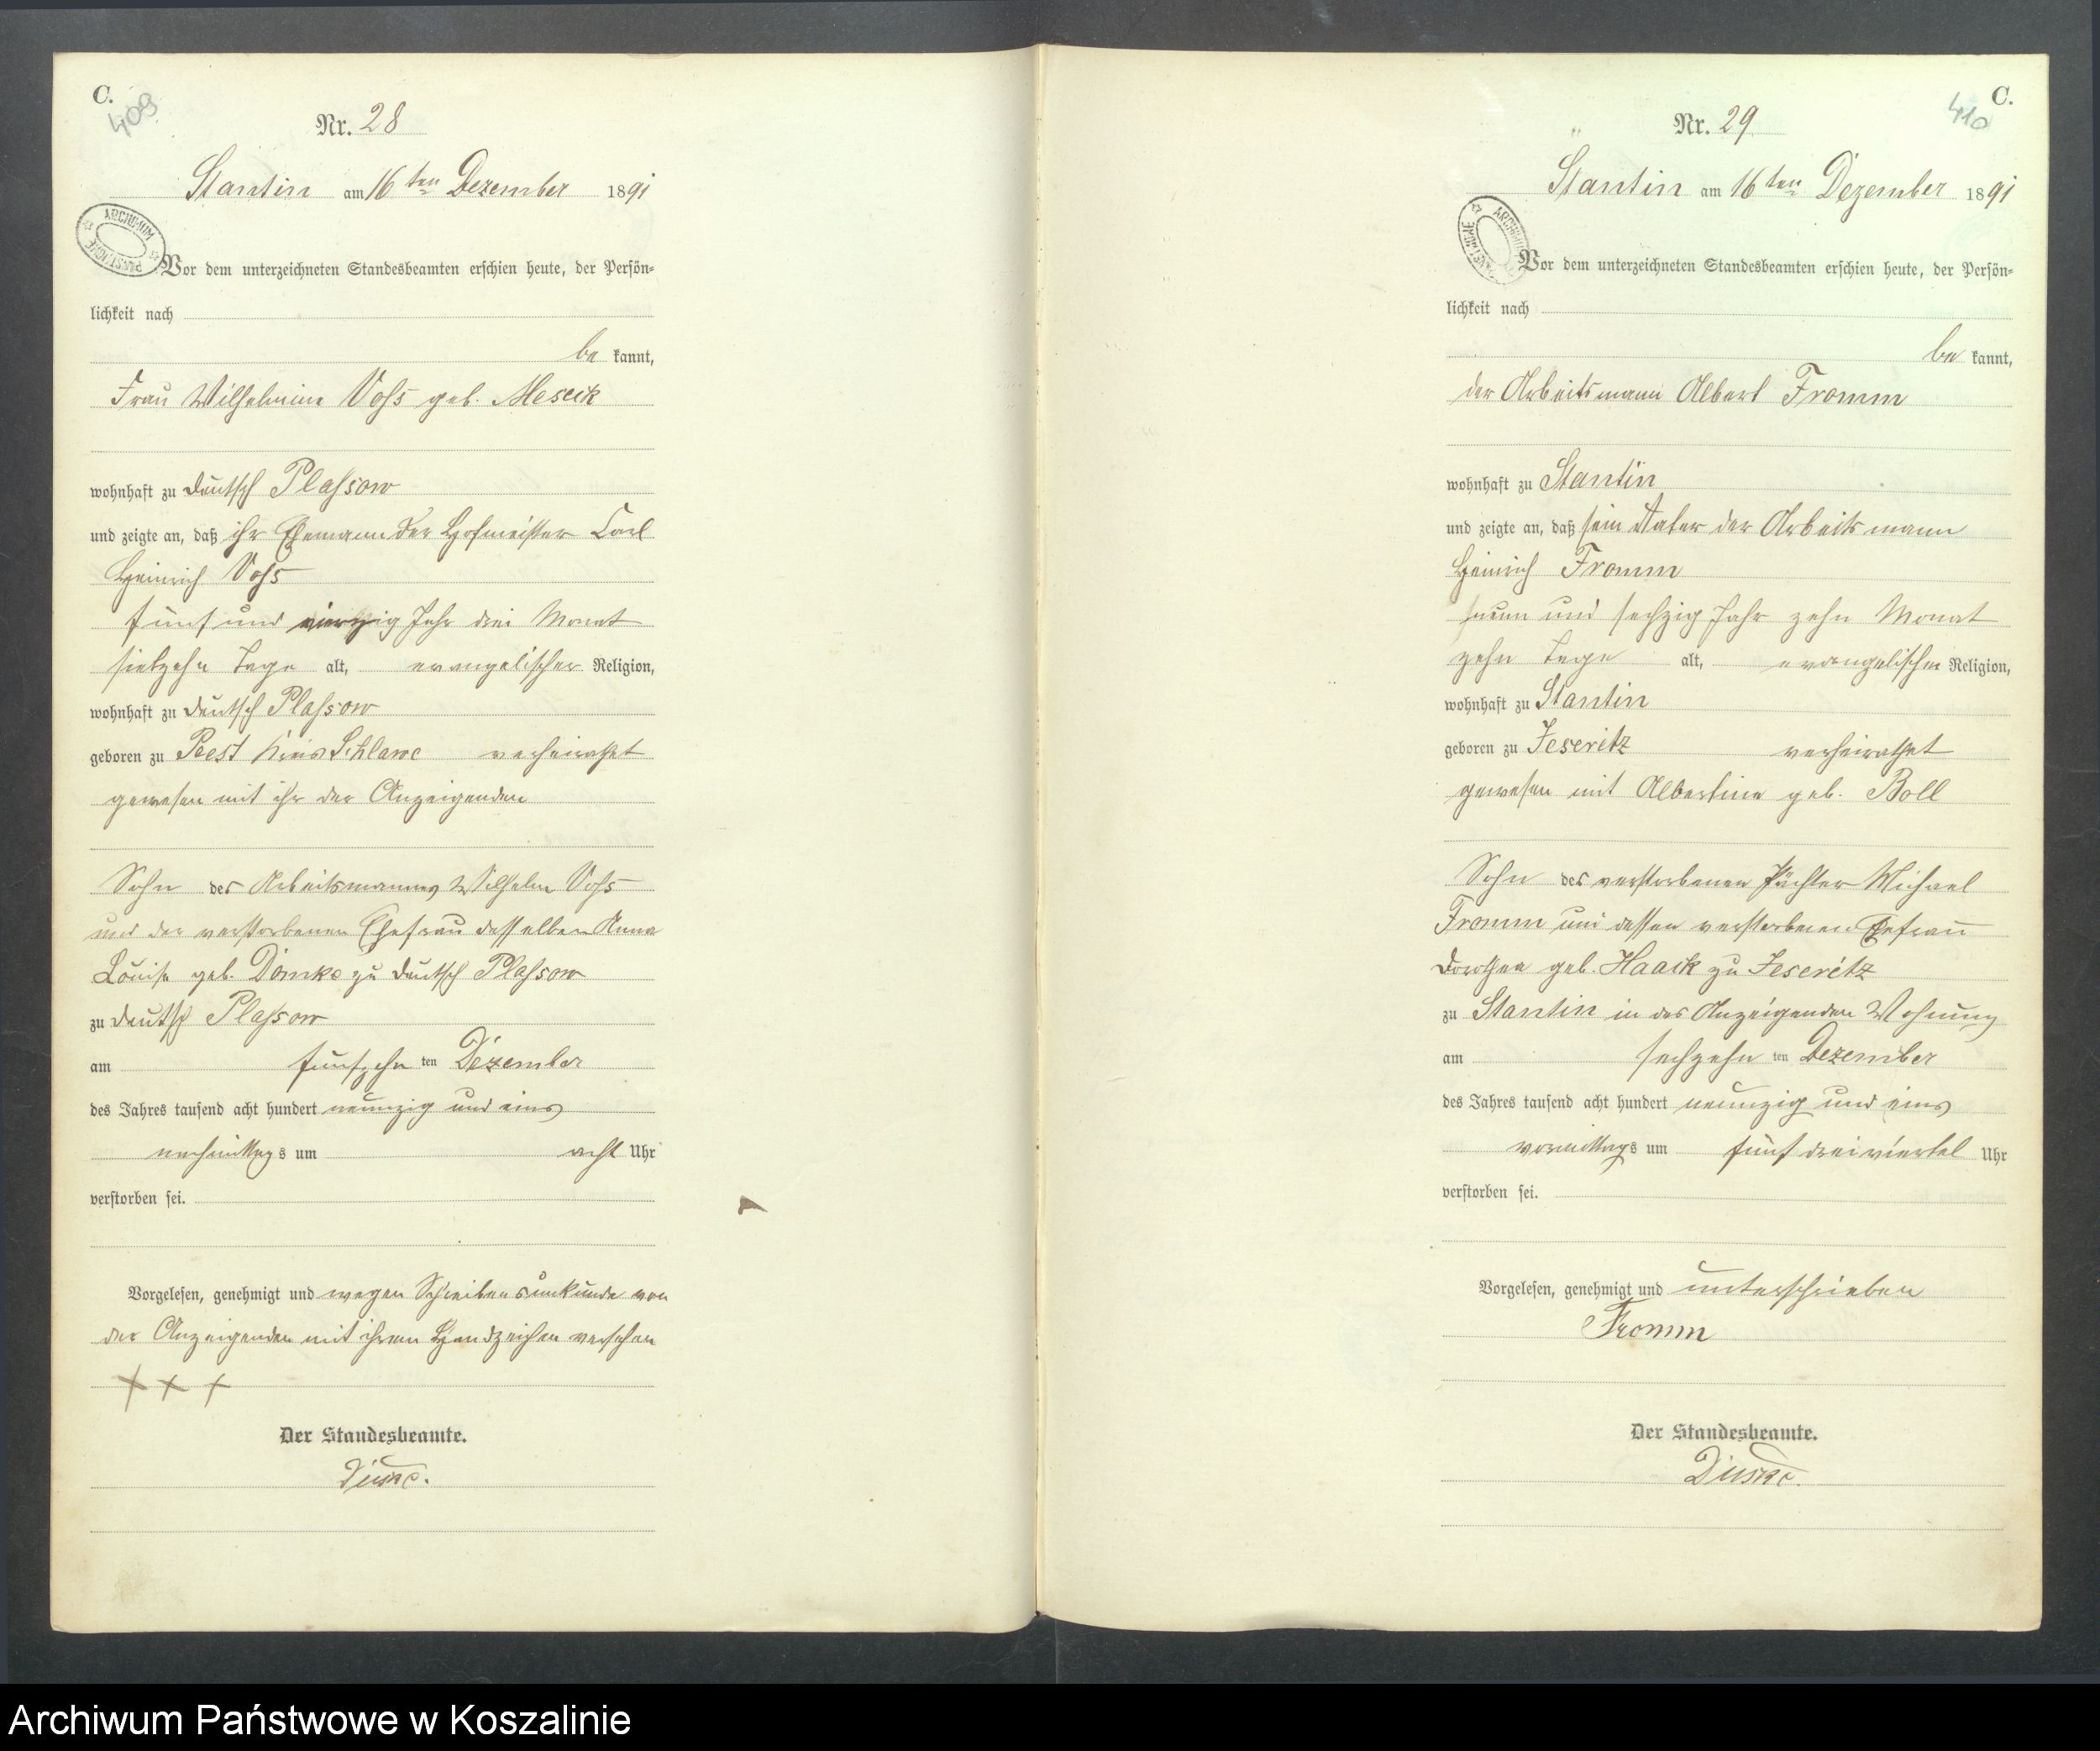 C.
409
Nr. 28
Stantin am 16ten Dezember 1891
ARCHIWUM PAŃSTWOWE
Vor dem unterzeichneten Standesbeamten erschien heute, der Persön-
lichkeit nach
be kannt,
Frau Wilhelmine Voß geb. Meseck
wohnhaft zu Deutsch Plassow
und zeigte an, daß ihr Ehemann der Hofmeister Carl
Heinrich Voß
fünf und vierzig Jahr drei Monat
siebzehn Tage alt, evangelischer Religion,
wohnhaft zu Deutsch Plassow
geboren zu Peest Kreis Schlawe verheirathet
gewesen mit ihr der Anzeigenden
Sohn des Arbeitsmannes Wilhelm Voß
und der verstorbenen Ehefrau desselben Anna
Louise geb. Domke zu Deutsch Plassow
zu Deutsch Plassow
am fünfzehn ten Dezember
des Jahres tausend acht hundert neunzig und eins
nachmittags um acht Uhr
verstorben sei.
Vorgelesen, genehmigt und wegen Schreibensunkunde von
der Anzeigenden mit ihrem Handzeichen versehen
+ + +
Der Standesbeamte.
C.
410
Nr. 29
Stantin am 16ten Dezember 1891
ARCHIWUM PAŃSTWOWE
Vor dem unterzeichneten Standesbeamten erschien heute, der Persön-
lichkeit nach
be kannt,
der Arbeitsmann Albert Fromm
wohnhaft zu Stantin
und zeigte an, daß sein Vater der Arbeitsmann
Heinrich Fromm
neun und sechzig Jahr zehn Monat
zehn Tage alt, evangelischer Religion,
wohnhaft zu Stantin
geboren zu Jeseritz verheirathet
gewesen mit Albertine geb. Boll
Sohn des verstorbenen Pächter Michael
Fromm und dessen verstorbenen Ehefrau
Dorothea geb. Haack zu Jeseritz
zu Stantin in des Anzeigenden Wohnung
am sechzehn ten Dezember
des Jahres tausend acht hundert neunzig und eins
vormittags um fünf dreiviertel Uhr
verstorben sei.
Vorgelesen, genehmigt und unterschrieben
Fromm
Der Standesbeamte.
Archiwum Państwowe w Koszalinie